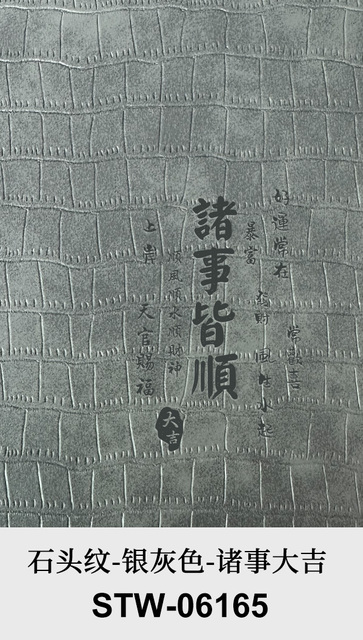 好運常在
暴富
風生水起
諸事皆順
順風順水順財神
上岸
天官賜福
大吉
石头纹-银灰色-诸事大吉
STW-06165